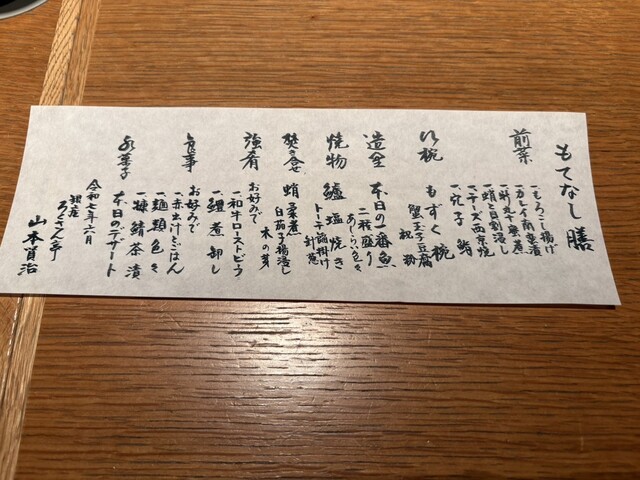 もてなし膳
前菜
一、もろこし揚げ
一、カレイ南蛮漬
一、新丸十蜜煮
一、蛸と白割浸し
一、チーズ西京焼
一、穴子鮨
椀 もずく椀
蟹玉子豆腐
梶粉
造里 本日の一番魚
二種盛り
あしらい色々
焼物 鱸塩焼き
トーチ餡掛け
針葱
焚き合せ 蛸柔煮
白茄子揚浸し
木の芽
強肴 お好みで
一、和牛ローストビーフ
一、鰹煮卸し
食事 お好みで
一、赤出汁とごはん
一、麺類色々
一、棟鯖茶漬
水菓子 本日のデザート
令和七年六月
銀座 ろくさん亭
山本賢治